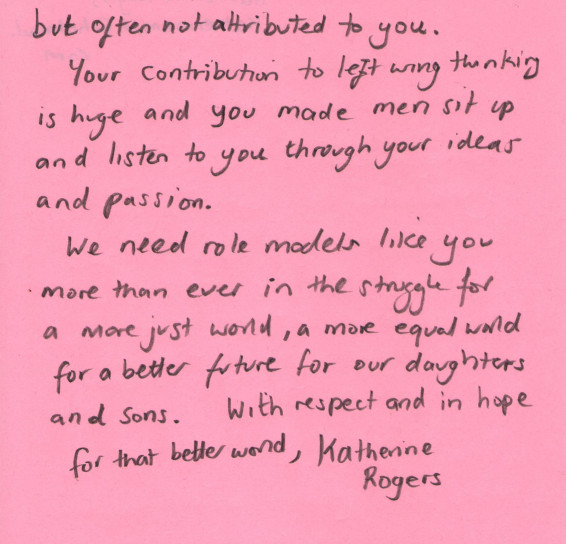 but often not attributed to you.
Your contribution to left wing thinking
is huge and you made men sit up
and listen to you through your ideas
and passion.
We need role models like you
more than ever in the struggle for
a more just world, a more equal world
for a better future for our daughters
and sons. With respect and in hope
for that better world, Katherine
Rogers